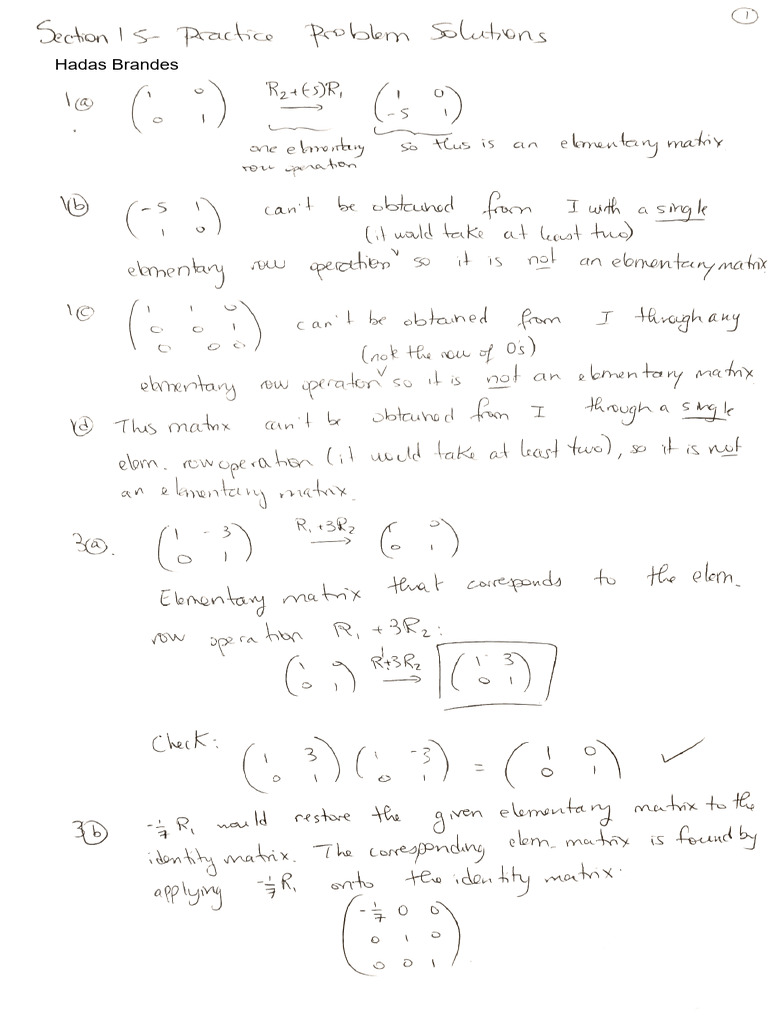 1
Section 1 5- Practice Problem Solutions
Hadas Brandes
1(a) (1 0; 0 1) R2+(-5)R1 → (1 0; -5 1)
one elementary row operation so this is an elementary matrix
1(b) (-5 1; 1 0) can't be obtained from I with a single
(it would take at least two)
elementary row operation ˅ so it is not an elementary matrix
1(c) (1 1 0; 0 0 1; 0 0 0) can't be obtained from I through any
(note the row of 0's)
elementary row operation ˅ so it is not an elementary matrix
1(d) This matrix can't be obtained from I through a single
elem. row operation (it would take at least two), so it is not
an elementary matrix.
3(a). (1 -3; 0 1) R1+3R2 → (1 0; 0 1)
Elementary matrix that corresponds to the elem.
row operation R1 + 3R2:
(1 0; 0 1) R1+3R2 → (1 3; 0 1)
Check: (1 3; 0 1) (1 -3; 0 1) = (1 0; 0 1) ✓
3(b) -1/7 R1 would restore the given elementary matrix to the
identity matrix. The corresponding elem. matrix is found by
applying -1/7 R1 onto the identity matrix.
(-1/7 0 0; 0 1 0; 0 0 1)